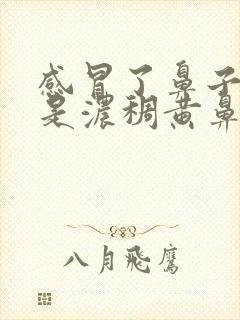 感冒了鼻子
是濃稠黄鼻
八月飛鷹